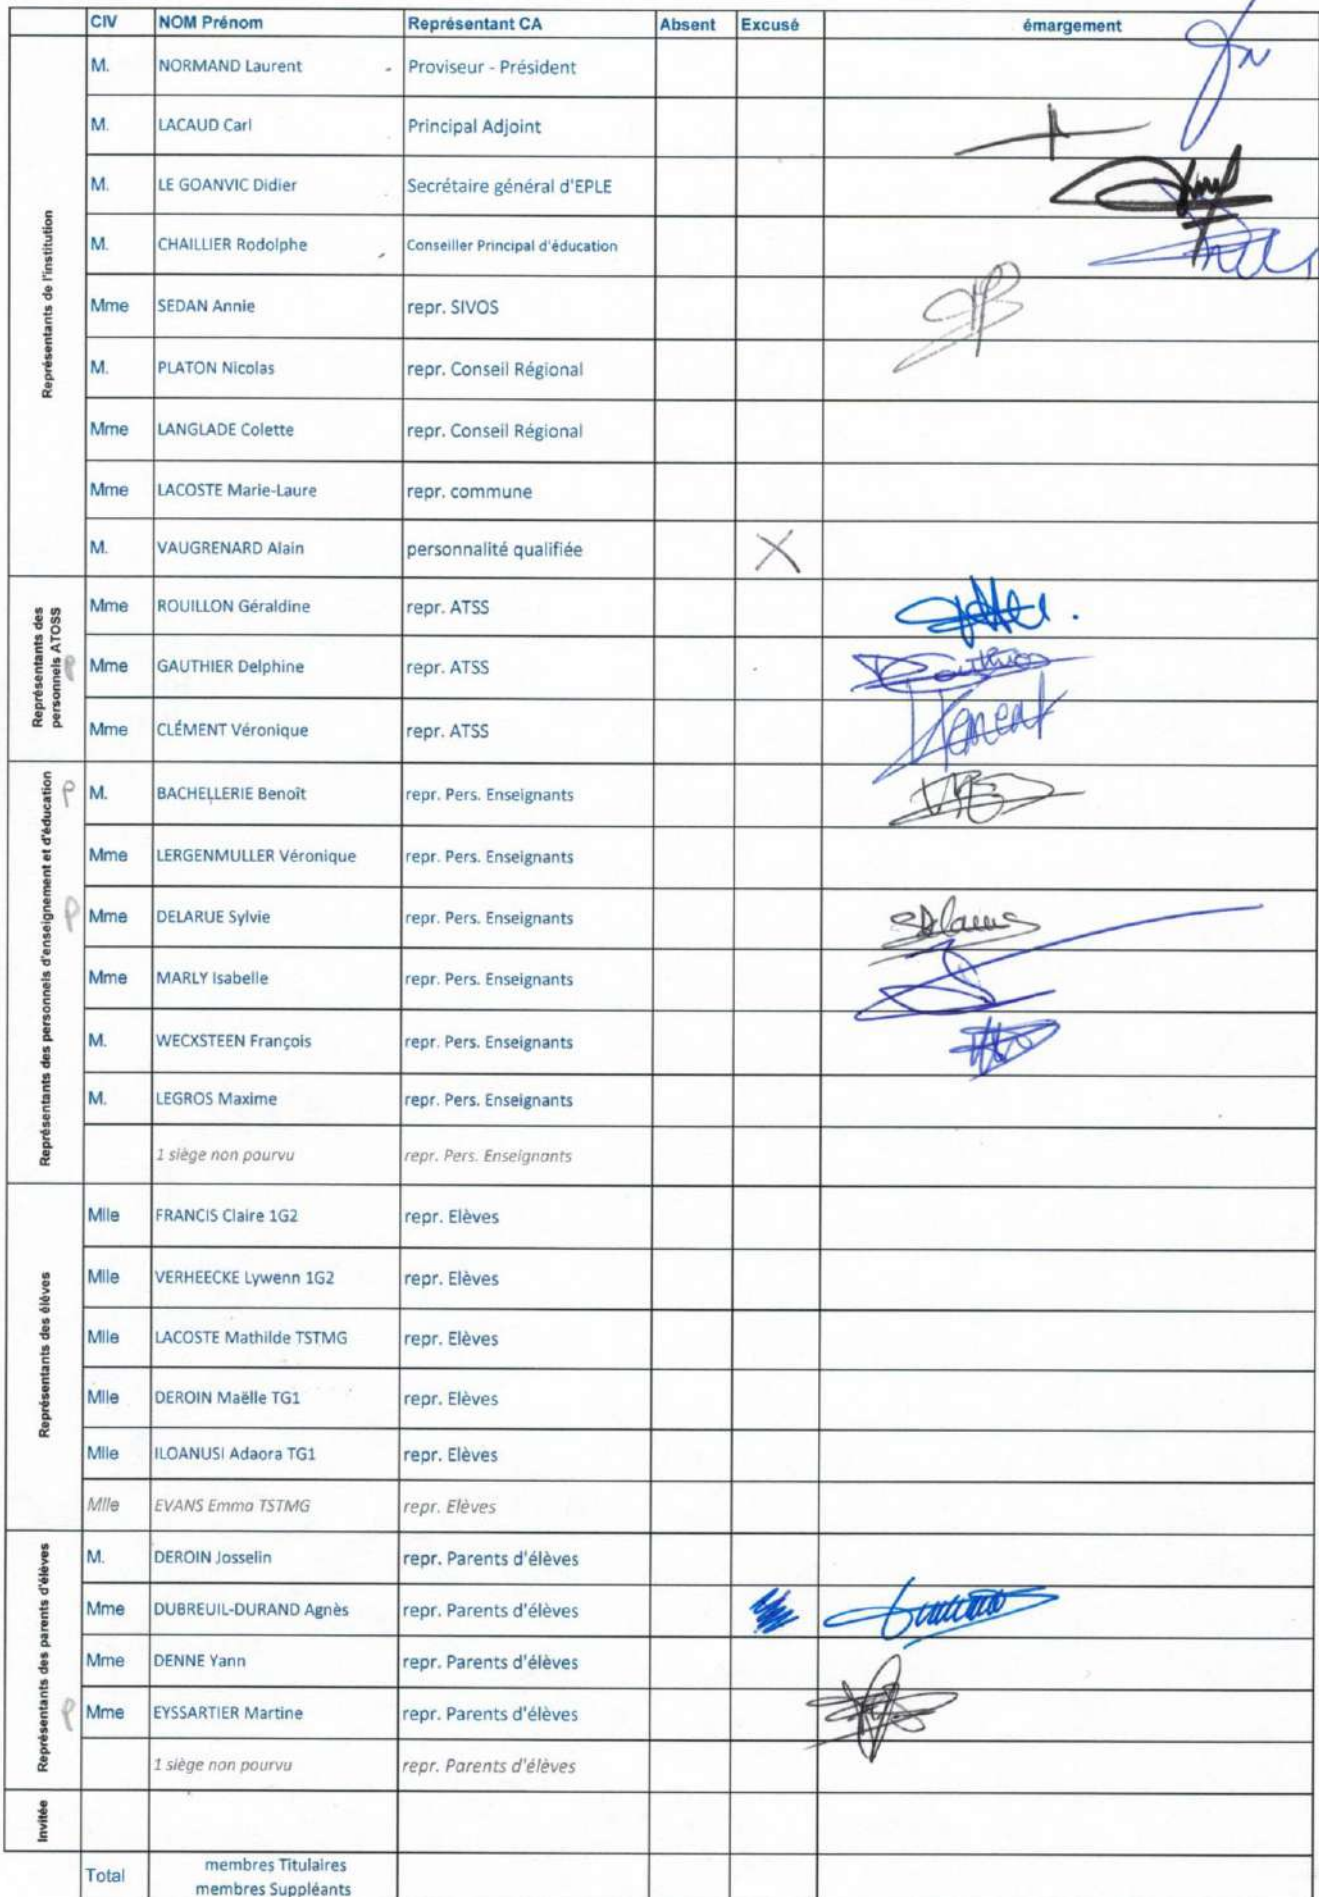 CIV NOM Prénom Représentant CA Absent Excusé émargement
Représentants de l'institution
M. NORMAND Laurent - Proviseur - Président
M. LACAUD Carl Principal Adjoint
M. LE GOANVIC Didier Secrétaire général d'EPLE
M. CHAILLIER Rodolphe Conseiller Principal d'éducation
Mme SEDAN Annie repr. SIVOS
M. PLATON Nicolas repr. Conseil Régional
Mme LANGLADE Colette repr. Conseil Régional
Mme LACOSTE Marie-Laure repr. commune
M. VAUGRENARD Alain personnalité qualifiée X
Représentants des
personnels ATOSS
Mme ROUILLON Géraldine repr. ATSS
P Mme GAUTHIER Delphine repr. ATSS
Mme CLÉMENT Véronique repr. ATSS
Représentants des personnels d'enseignement et d'éducation
P M. BACHELLERIE Benoît repr. Pers. Enseignants
Mme LERGENMULLER Véronique repr. Pers. Enseignants
P Mme DELARUE Sylvie repr. Pers. Enseignants
Mme MARLY Isabelle repr. Pers. Enseignants
M. WECXSTEEN François repr. Pers. Enseignants
M. LEGROS Maxime repr. Pers. Enseignants
1 siège non pourvu repr. Pers. Enseignants
Représentants des élèves
Mlle FRANCIS Claire 1G2 repr. Elèves
Mlle VERHEECKE Lywenn 1G2 repr. Elèves
Mlle LACOSTE Mathilde TSTMG repr. Elèves
Mlle DEROIN Maëlle TG1 repr. Elèves
Mlle ILOANUSI Adaora TG1 repr. Elèves
Mlle EVANS Emma TSTMG repr. Elèves
Représentants des parents d'élèves
M. DEROIN Josselin repr. Parents d'élèves
Mme DUBREUIL-DURAND Agnès repr. Parents d'élèves
Mme DENNE Yann repr. Parents d'élèves
P Mme EYSSARTIER Martine repr. Parents d'élèves
1 siège non pourvu repr. Parents d'élèves
Invitée
Total membres Titulaires
membres Suppléants